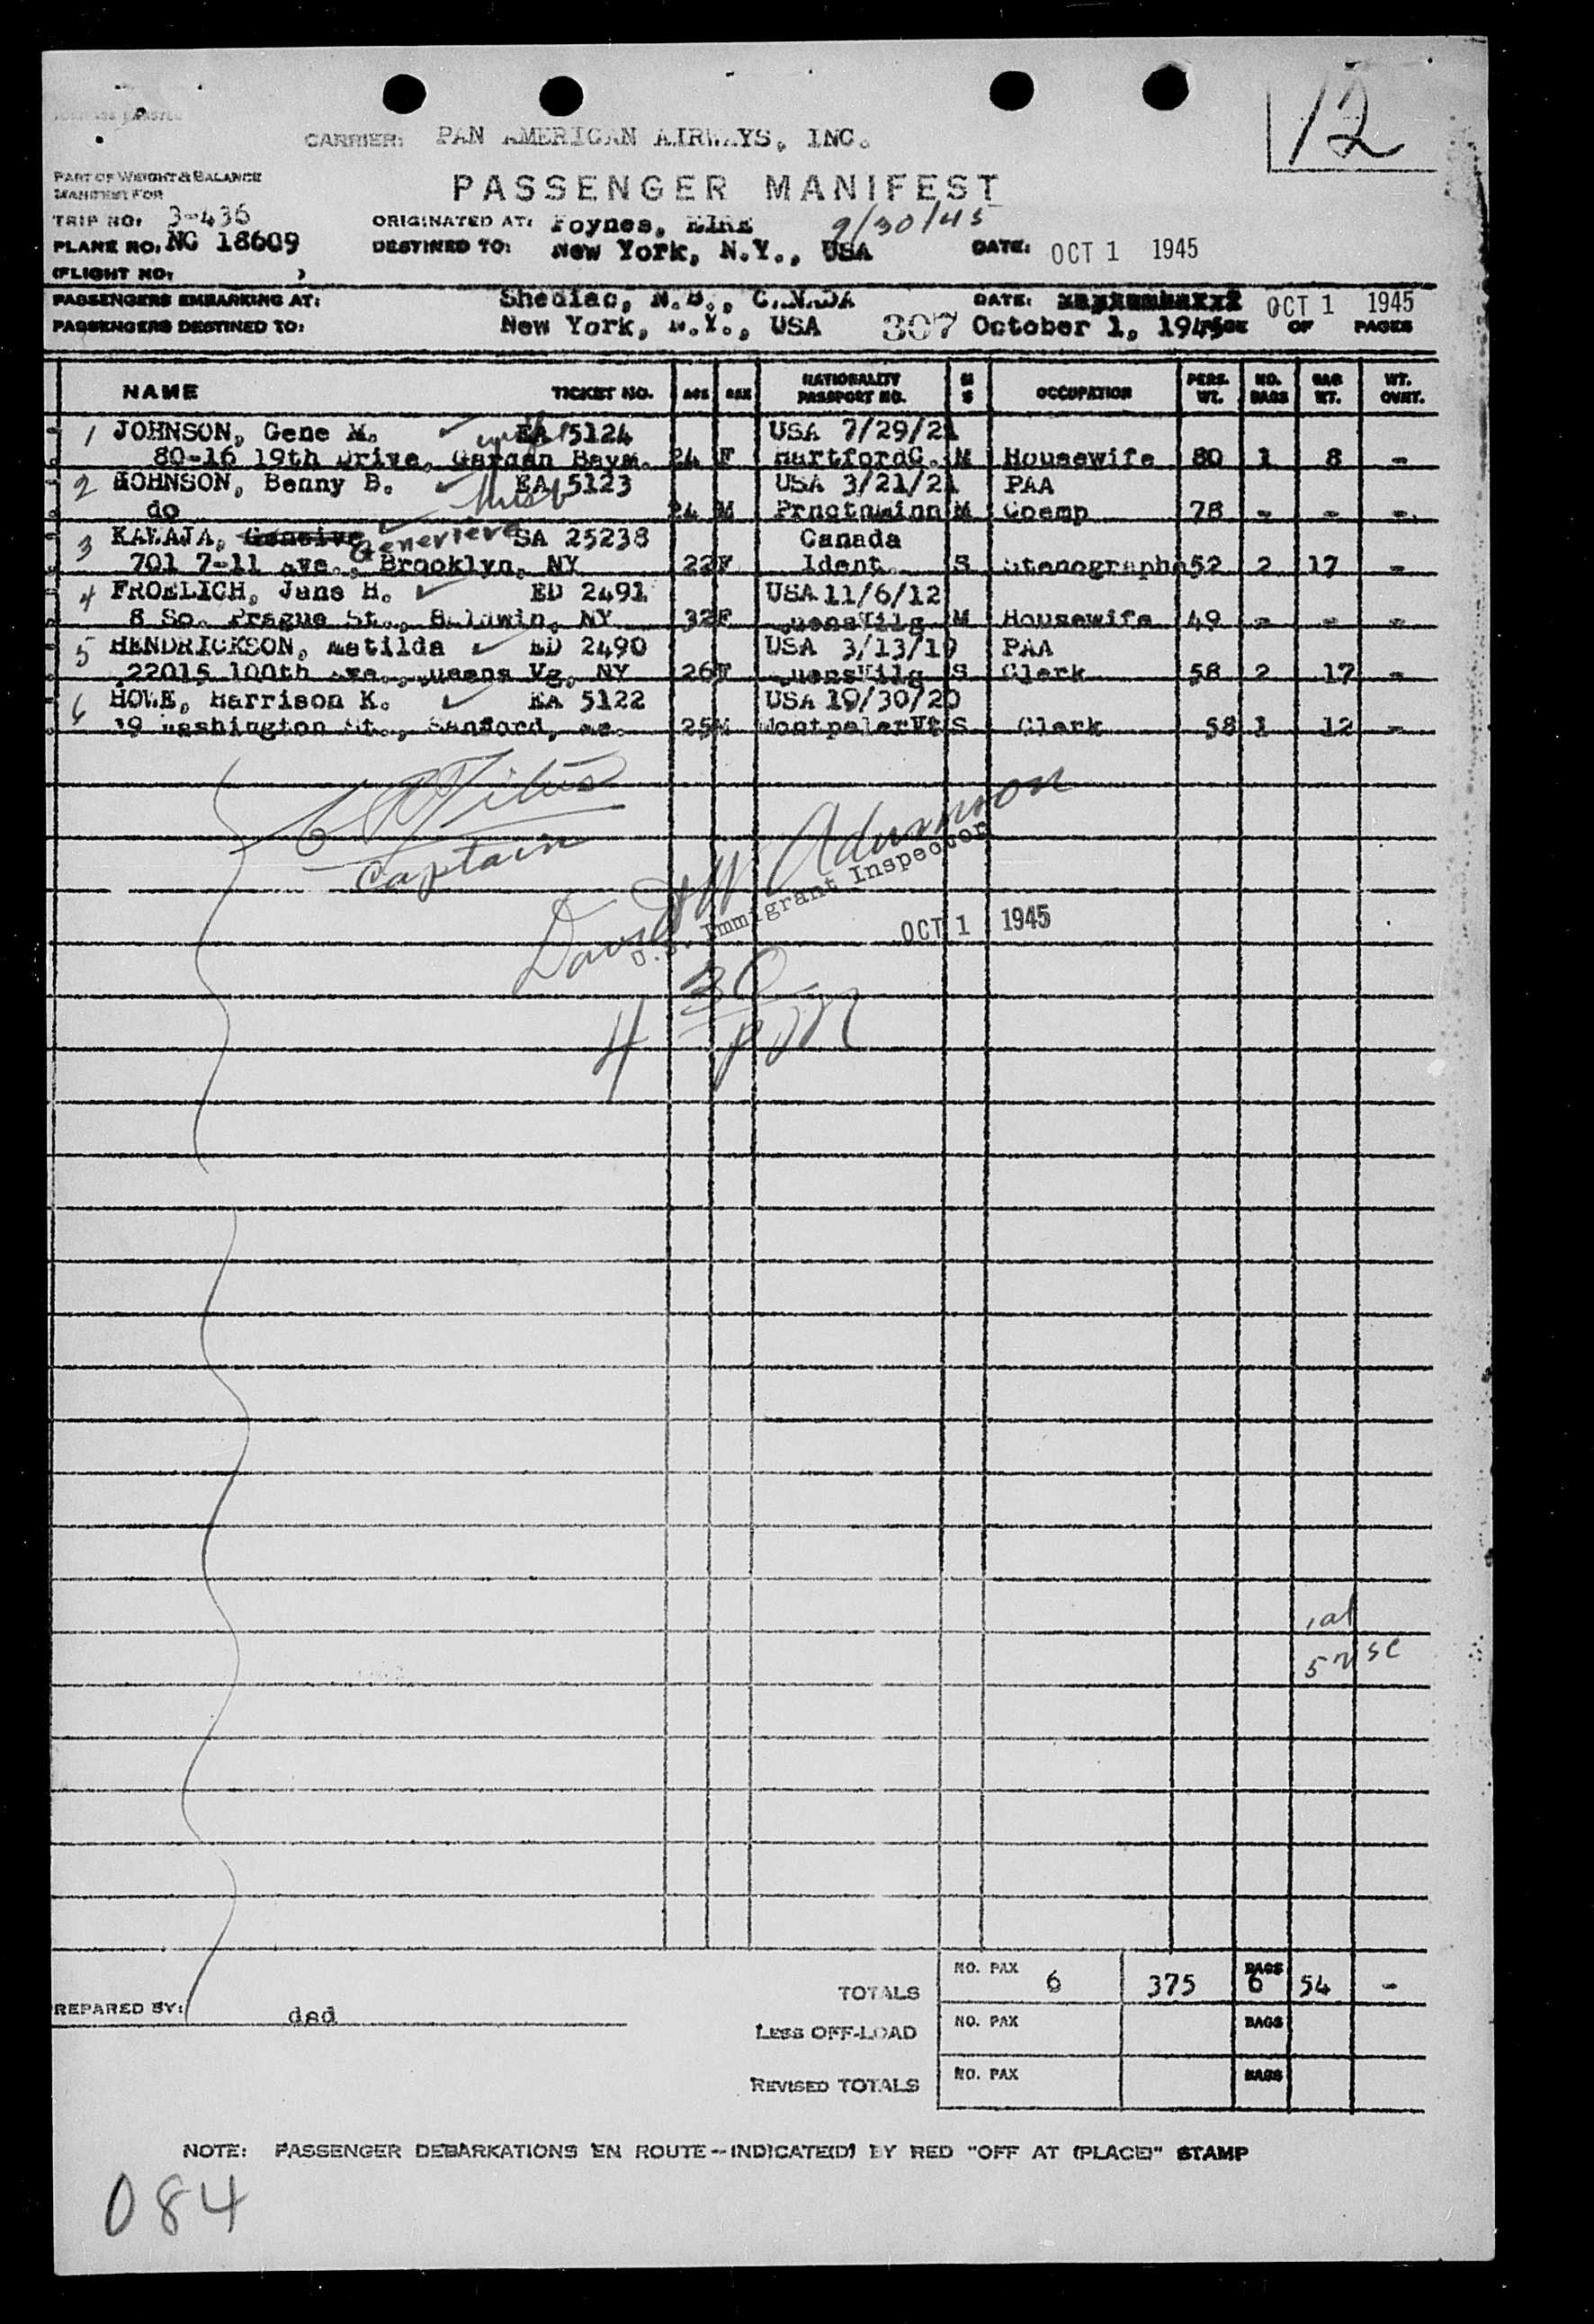 12
CARRIER: PAN AMERICAN AIRWAYS, INC.
PART OF WEIGHT & BALANCE
MANIFEST FOR
PASSENGER MANIFEST
TRIP NO: 3-436 ORIGINATED AT: Foynes, EIRE 9/30/45
PLANE NO. NC 18609 DESTINED TO: New York, N.Y., USA DATE: OCT 1 1945
(FLIGHT NO: )
PASSENGERS EMBARKING AT: Shediac, N.B., CANADA DATE: OCT 1 1945
PASSENGERS DESTINED TO: New York, N.Y., USA 307 October 1, 1945 PAGE OF PAGES
NAME TICKET NO. AGE SEX NATIONALITY PASSPORT NO. M S OCCUPATION PERS. WT. NO. BAGS BAG WT. WT. OVRT.
1 JOHNSON, Gene M. wife EA 5124 USA 7/29/21
80-16 19th Drive, Garden Baym. 24 F HartfordC. M Housewife 80 1 8 -
2 JOHNSON, Benny B. Husb EA 5123 USA 3/21/21 PAA
do 24 M M Coemp 78 - - -
3 KAWAJA, Geneive Genevieve SA 25238 Canada
701 7-11 ave., Brooklyn, NY 22 F Ident. S Stenographe 52 2 17 -
4 FROELICH, Jane H. ED 2491 USA 11/6/12
8 So. Prague St., Baldwin, NY 32 F QuensVilg M Housewife 49 - - -
5 HENDRICKSON, Matilda ED 2490 USA 3/13/19 PAA
22015 100th Ave., Queens Vg, NY 26 F QuensVilg S Clerk 58 2 17 -
6 HOWE, Harrison K. EA 5122 USA 10/30/20
19 Washington St., Sanford, Me. 25 M MontpelerVt S Clerk 58 1 12 -
Titus
Captain
David W Adamson
U.S. Immigrant Inspector
OCT 1 1945
4 30 pm
1 al
5 n sc
TOTALS NO. PAX 6 375 BAGS 6 54 -
PREPARED BY: dsd
LESS OFF-LOAD NO. PAX BAGS
REVISED TOTALS NO. PAX BAGS
NOTE: PASSENGER DEBARKATIONS EN ROUTE - INDICATE(D) BY RED "OFF AT (PLACE)" STAMP
084